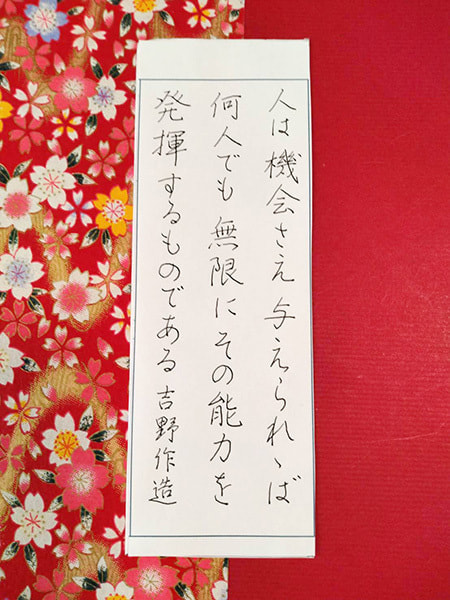 人は機会さえ与えられゝば
何人でも無限にその能力を
発揮するものである 吉野作造